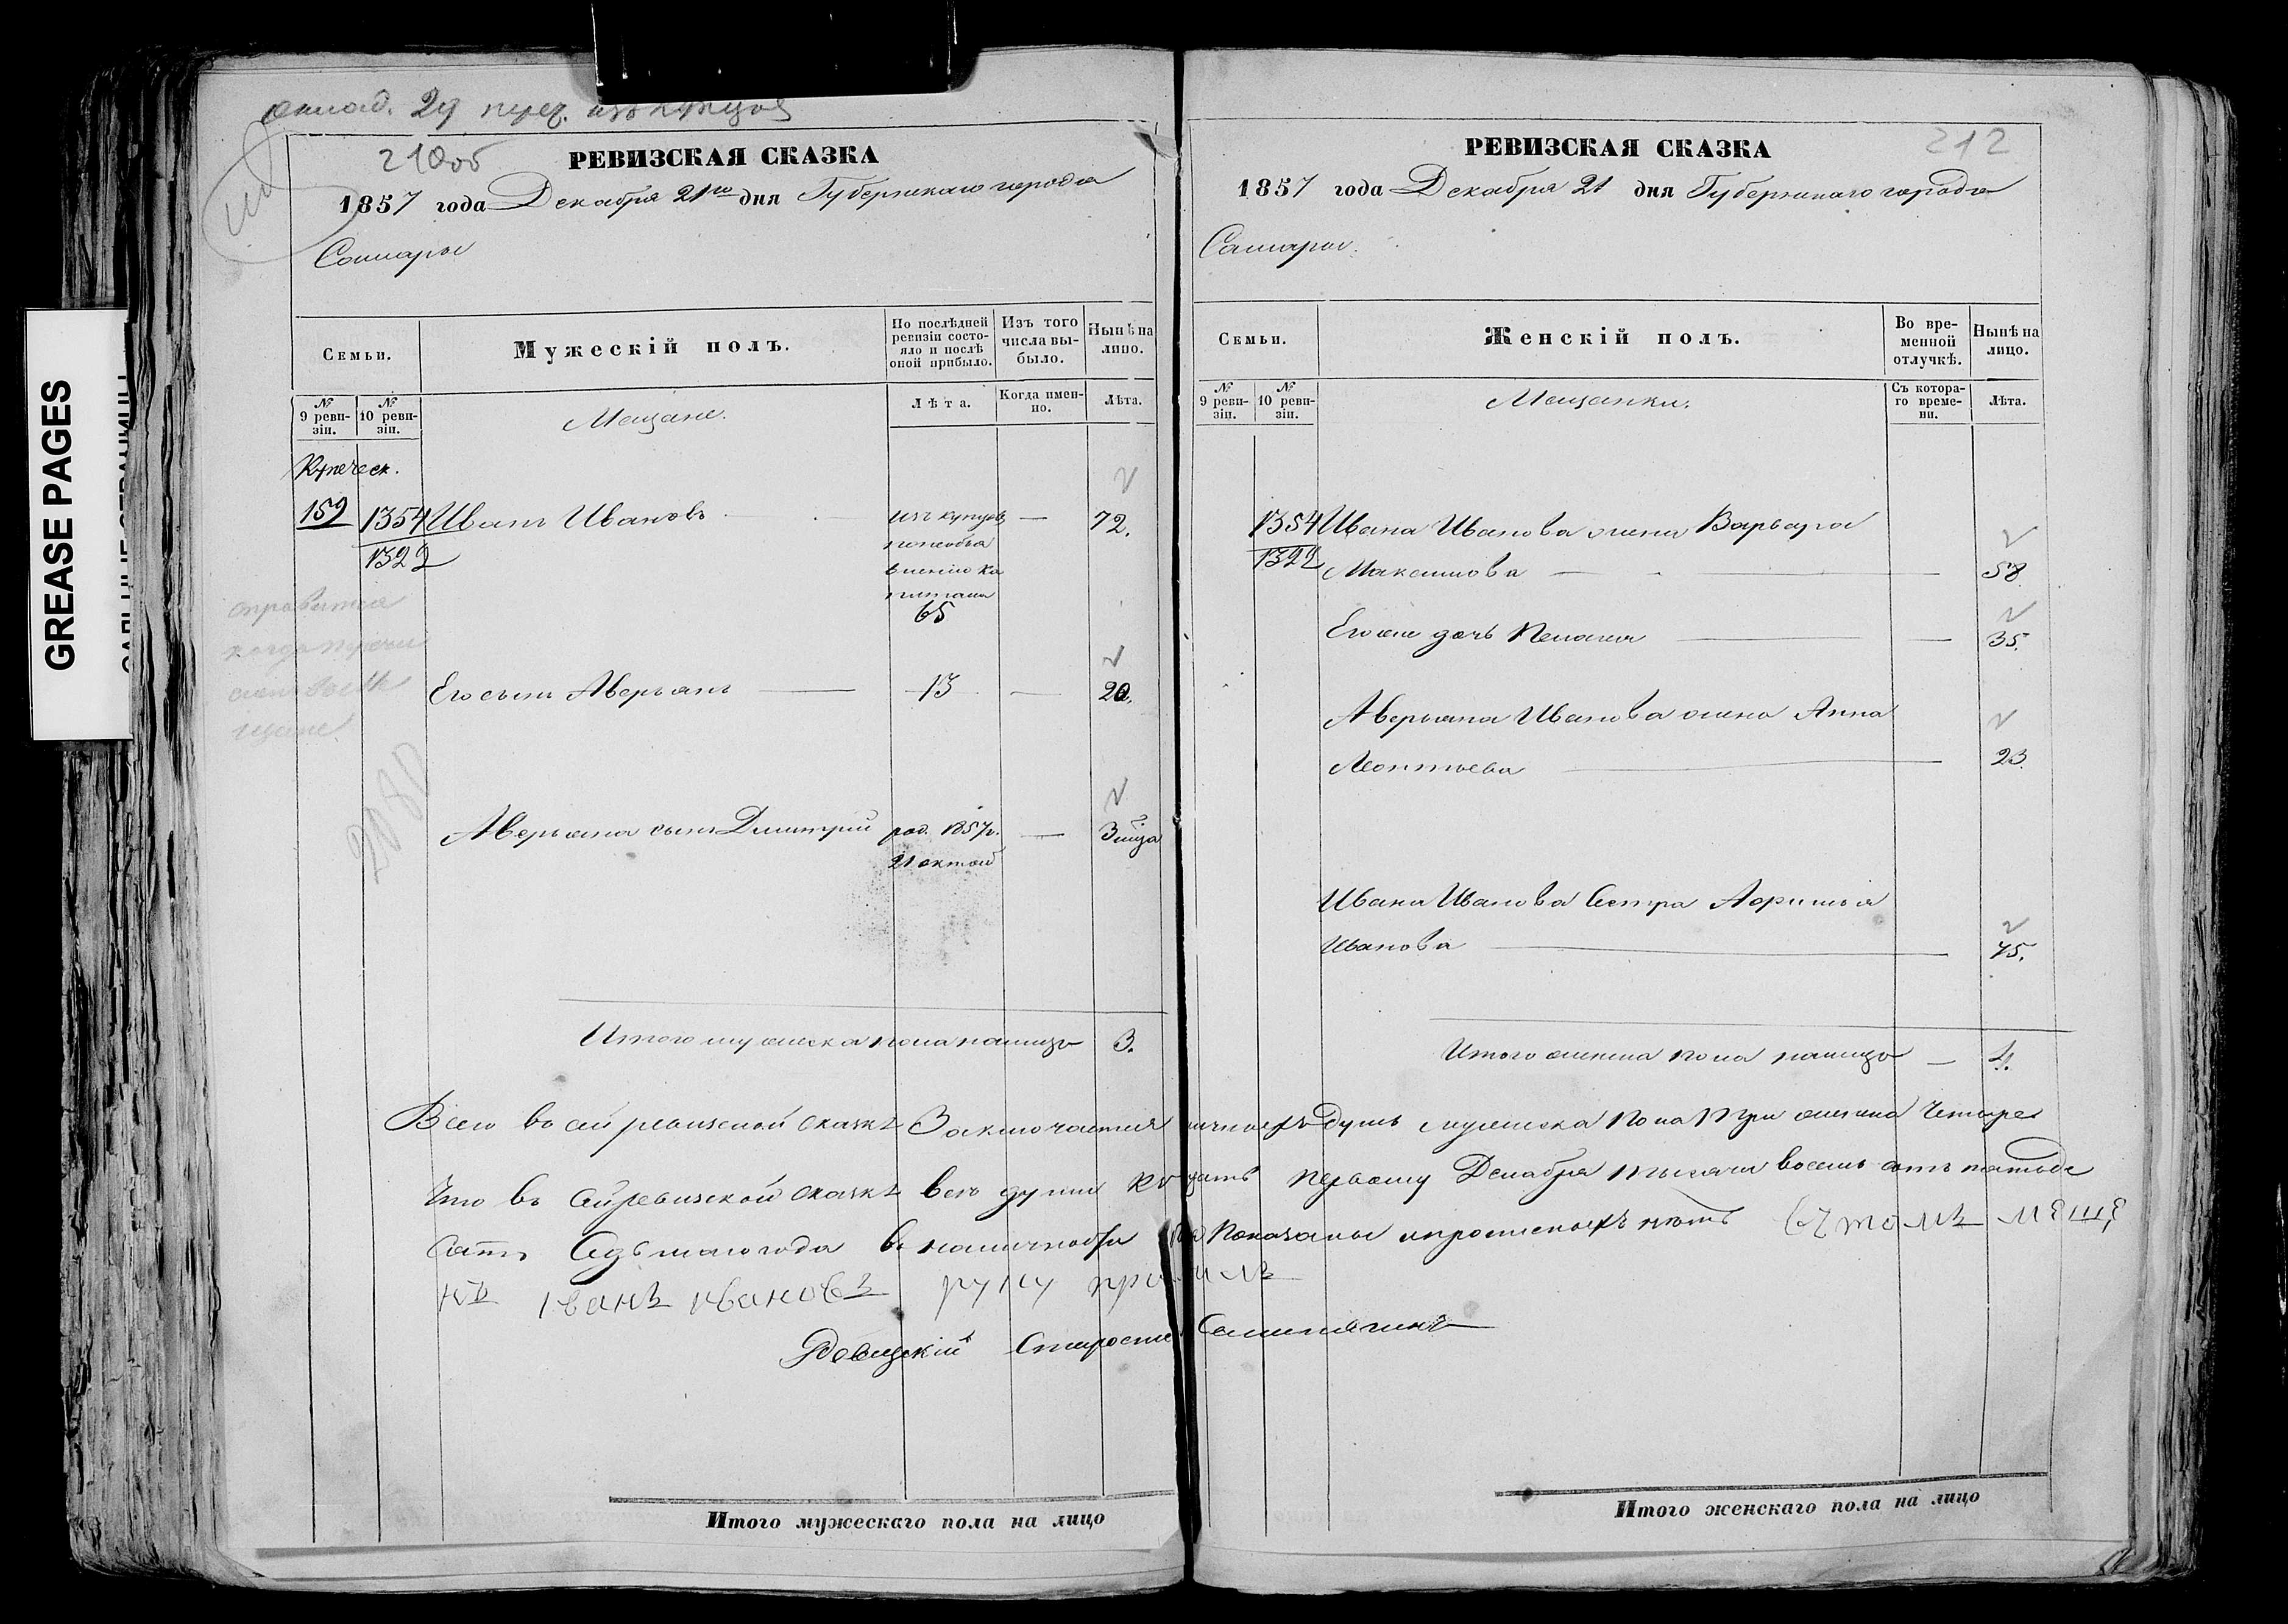 GREASE PAGES
оклад. 29 пуст. изъ купцов
210об
РЕВИЗСКАЯ СКАЗКА
1857 года Декабря 21го дня Губернскаго города
Самары
Семьи.
Мужескій полъ.
По послѣдней ревизіи состояло и послѣ оной прибыло.
Изъ того числа выбыло.
Нынѣ на лицо.
№ 9 ревизіи.
№ 10 ревизіи.
Мещане.
Лѣта.
Когда именно.
Лѣта.
Купеческ.
159 1354 Иванъ Ивановъ — изъ купцов — 72.
1322
65
Его сынъ Аверьянъ — 13 — 20.
2080
Аверьяна сынъ Дмитрій род. 1857г. — 3 мца
21 октяб
Итого мужеска пола налицо 3.
212
РЕВИЗСКАЯ СКАЗКА
1857 года Декабря 21 дня Губернскаго города
Самары.
Семьи.
Женскій полъ.
Во временной отлучкѣ.
Нынѣ на лицо.
№ 9 ревизіи.
№ 10 ревизіи.
Мещанки.
Съ котораго времени.
Лѣта.
1354 Ивана Иванова жена Варвара
1322 Максимова — — 58
Его же дочь Пелагея — — 35.
Аверьяна Иванова жена Анна
Леонтьева — 23.
Ивана Иванова Сестра Афимья
Иванова — 75.
Итого женска пола налицо — 4.
Всего в сей ревизской сказкѣ Заключается наличныхъ душъ мужеска пола три женска Четыре
Что въ сей ревизской сказкѣ всѣ души къ двадцать первому Декабря тысяча восемь сотъ пятьде
сятъ Седьмаго года в наличности показаны и прописныхъ нѣтъ вътомъ мещ
нъ Iванъ ивановъ руку приложилъ
Староста
Итого мужескаго пола на лицо
Итого женскаго пола на лицо